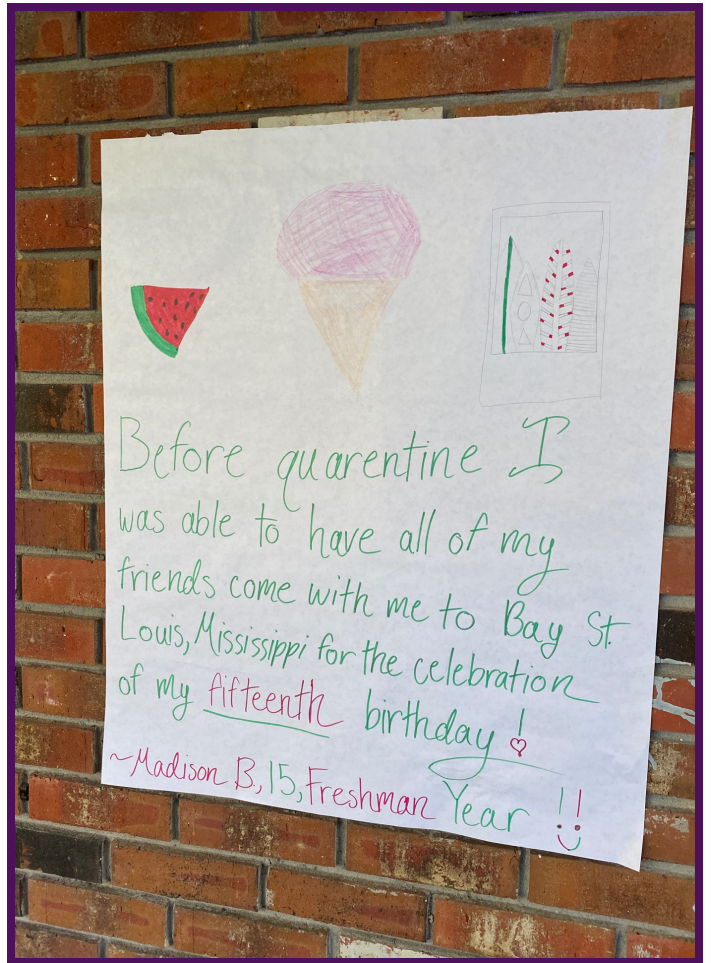 Before quarentine I
was able to have all of my
friends come with me to Bay St.
Louis, Mississippi for the celebration
of my fifteenth birthday!
~Madison B., 15, Freshman Year !!